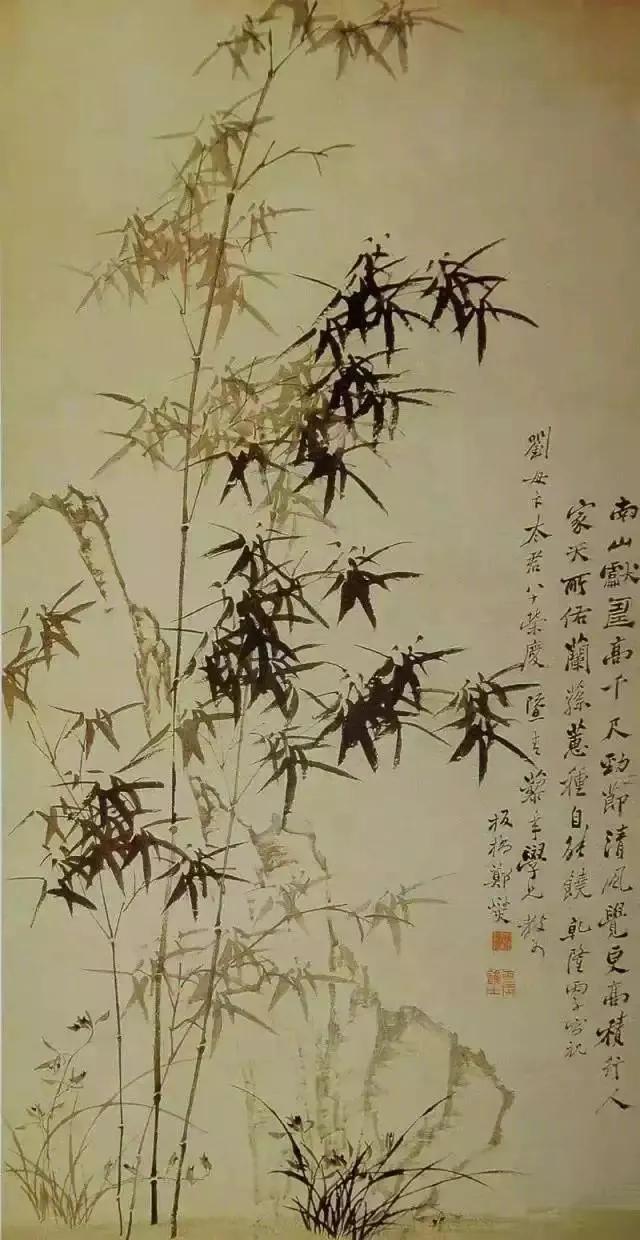 南山獻壽高千尺勁節清風覺更高積行人
家天所佑蘭蓀蕙種自能饒 乾隆
劉母卞太君八十榮慶 暨青藜年學兄
板橋鄭燮